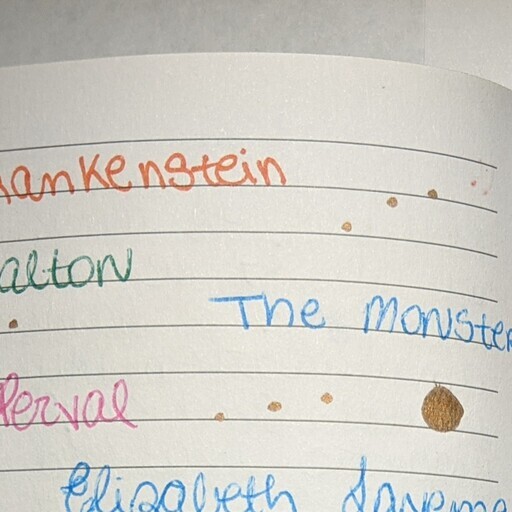 ankenstein
alton
The Monster
Perval
Elizabeth Lavenza